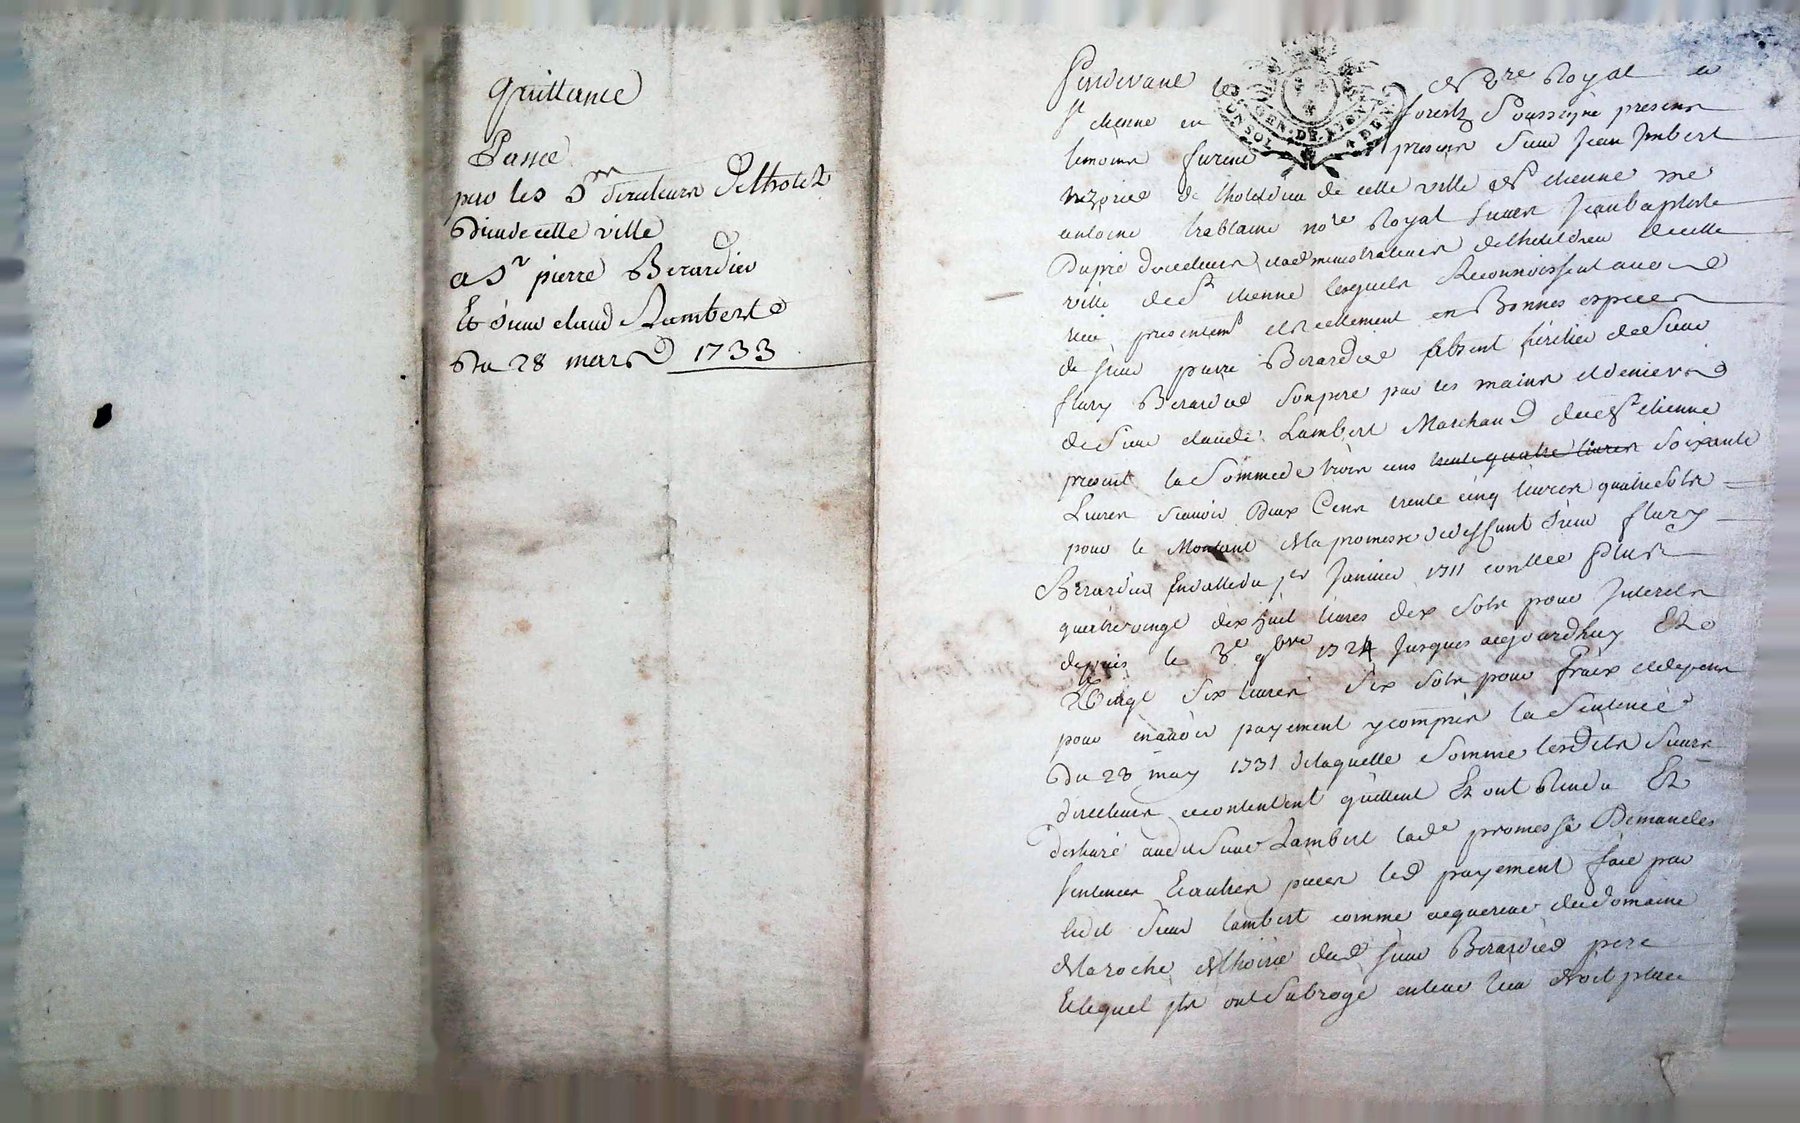 Quittance
Passée
par les Srs directeurs delhotel
Dieu de cette ville
a Sr pierre Berardier
Et sieur claud Lambert
Du 28 mars 1733
GEN. DE
UN SOL
DEN
Pardevant le no.re Royal a
St etienne en forestz Soussigné presens
temoins furent presens Sieur Jean Jmbert
de lhoteldieu de cette ville de St etienne me
antoine trablaine no.re Royal sieur Jeanbaptiste
Dupré directeurs et administrateurs delhoteldieu decette
ville de St etienne lesquels Reconnoissent avoir
recu presentemt et reellement en Bonnes especes
de sieur pierre Berardier absent heritier de Sieur
flury Berardier son pere par les mains et deniers
de Sieur claude Lambert Marchand dudt St etienne
present la Somme de trois cens trente quatre livres soixante
Livres scavoir Deux Cens trente cinq livres quatre sols
pour le Montant de la promesse dudeffunt sieur flury
Berardier en datte du 1er Janvier 1711 conttrollée Plus
quatre vingt dix huit livres dix sols pour Jnterets
depuis le 8e 9bre 1724 Jusques aujourdhuy Et
Vingt six livres six sols pour fraix et depens
pour en avoir payement y compris la Sentence
Du 23 may 1731 de laquelle somme lesdits sieurs
directeurs se contentent quittent Et ont Rendu Et
audit Sieur Lambert lade promesse Demandes
sentences Et autres pieces led payement fait par
ledit Sieur Lambert comme acquereur du domaine
dud sieur Berardier pere
Et lequel jls ont Subrogé en leur lieu droit place